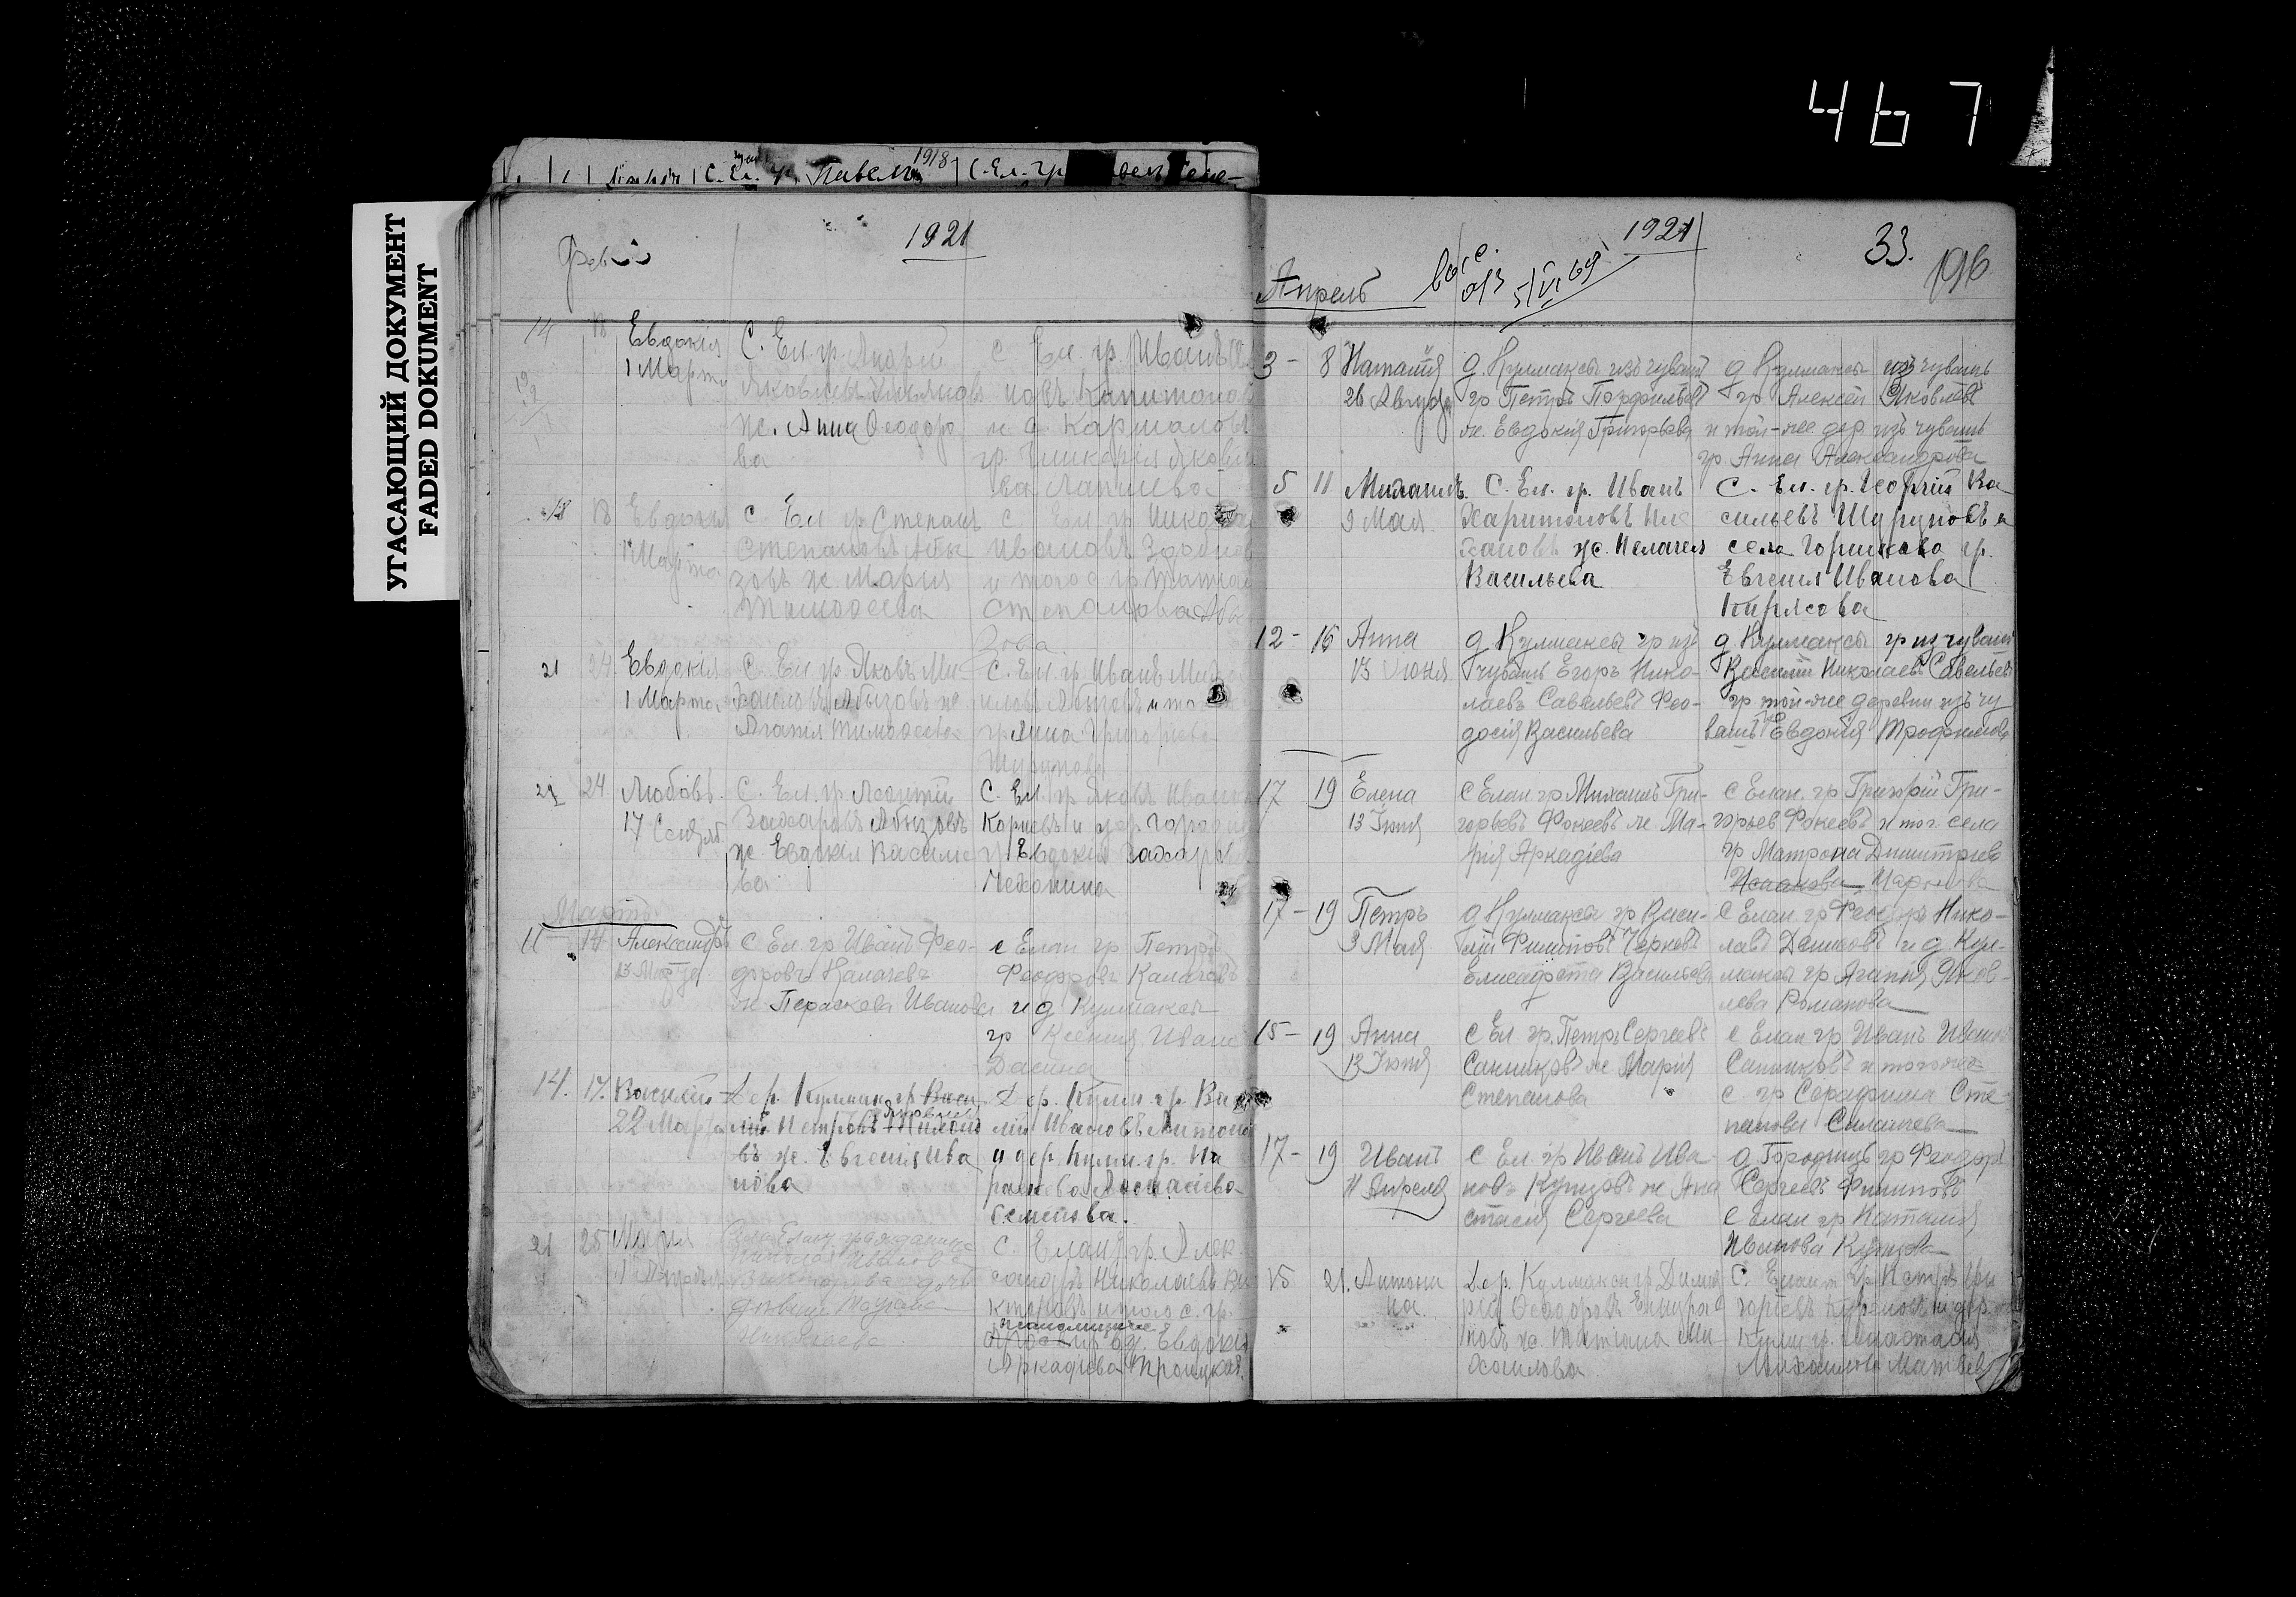 467
УГАСАЮЩИЙ ДОКУМЕНТ
FADED DOKUMENT
С. Ел. гр. Павелъ 1918 С. Ел. гр
1921
14 18 Евдокія
1 Марта
С. Ел. гр. Андрей
Яковлевъ
ж. Анна Ѳеодоро
ва
с. Ел. гр. Иванъ
новъ Капитонов
и д. Кармалов
гр. Гликерія Яковле
ва Лапшева
18 18 Евдокія
1 Марта
с. Ел гр Степанъ
Степановъ Абы
зовъ ж. Марія
Тимоѳеева
с Ел гр Никола
Ивановъ
и того с. гр Татіан
Степанова Абы
зова
21 24 Евдокія
1 Марта
С. Ел гр Яковъ Ми-
хайловъ Абызовъ ж
Агапія Тимоѳеева
С. Ел. гр Иванъ Миха
иловъ Абызовъ и то
гр Анна Григорьева
Шурупова
21 24 Любовь
17 Сентяб
С. Ел. гр Леонтій
Захаровъ Абызовъ
ж. Евдокія Василье
ва
С. Ел. гр Яковъ Иванов
Корневъ и дер. Городищ
гр Евдокія Захарова
Чехонина
Мартъ
11 14 Александръ
13 Марта
с Ел. гр Иванъ Фео-
доровъ Калачевъ
ж Параскева Иванова
с Елан гр Петръ
Феодоровъ Калачевъ
и д Кулмаксы
гр Ксенія Ивано
Дасина
14. 17. Василій
22 Марта
Дер. Кулмак. гр Васи
лій Петровъ
въ ж. Евгенія Ива
нова
Дер. Кулм. гр. Васи
лій Ивановъ Антоно
и дер Кулм. гр. Па
раскева Аѳанасіева
Семенова.
21 25 Марія
1 Апрѣля
Села Елани гражданина
Николая Иванова
Викторова дочь
дѣвица
Николаева
С. Елани гр. Алек
сандръ Николаевъ Ви
кторовъ и того с. гр.
псаломщика
Евдокія
Аркадіева Троицкая.
1921
33.
196
Апрель
5/VI 69
3 - 8 Наталія
26 Август
д. Кулмаксы изъ чувашъ
гр Петръ Порфирьевъ
ж. Евдокія Григорьева
д Кулмаксы изъ чувашъ
гр Алексей Яковлевъ
и той-же дер изъ чувашъ
гр Анна Александрова
5 11 Михаилъ
9 Мая
С. Ел. гр. Иванъ
Харитоновъ Пле
хановъ ж. Пелагея
Васильева
С. Ел. гр. Георгій Ва
сильевъ Шуруповъ и
села Горшково гр.
Евгенія Иванова
Кирясова
12 - 16 Анна
13 Июня
д Кулмаксы гр изъ
чувашъ Егоръ Нико-
лаевъ Савельевъ Фео-
досія Васильева
д Кулмаксы гр из чуваш
Василій Николаевъ Савельевъ
гр той-же деревни изъ чу
вашъ Евдокія Трофимова
17 19 Елена
13 Іюня
с Елан гр Михаилъ Гри-
горьевъ Фокеевъ ж. Ма-
рія Аркадіева
с Елан. гр Григорій Гри-
горьев Фокеевъ и тог. села
гр Матрона Димитріева
Исаакова Маркова
17 - 19 Петръ
3 Мая
д Кулмаксы гр Васи-
лій Филиповъ Черновъ
Елисавета Васильева
с Елан. гр Феодоръ Нико-
лаевъ Денисовъ и д Кул-
максы гр Агапія Яков-
лева Романова
15 - 19 Анна
13 Іюня
с Ел гр. Петръ Сергеевъ
Санниковъ ж Марія
Степанова
с Елан гр Иванъ Иванов
Санниковъ и того же
с. гр Серафима Сте-
панова
17 - 19 Иванъ
11 Апреля
с Ел. гр Иванъ Ива
новъ Купцовъ ж Ана
стасія Сергеева
д Городищъ гр Феодоръ
Сергеевъ Филиповъ
с Елан гр Наталія
Иванова Купцова
15 21. Антони
на
Дер. Кулмакси гр Дими
рій Ѳеодоровъ
новъ ж. Татіана Ми
хайлова
С. Елани гр. Петръ Гри
горьевъ и дер.
Кулм гр. Анастасія
Михайлова Матвѣев